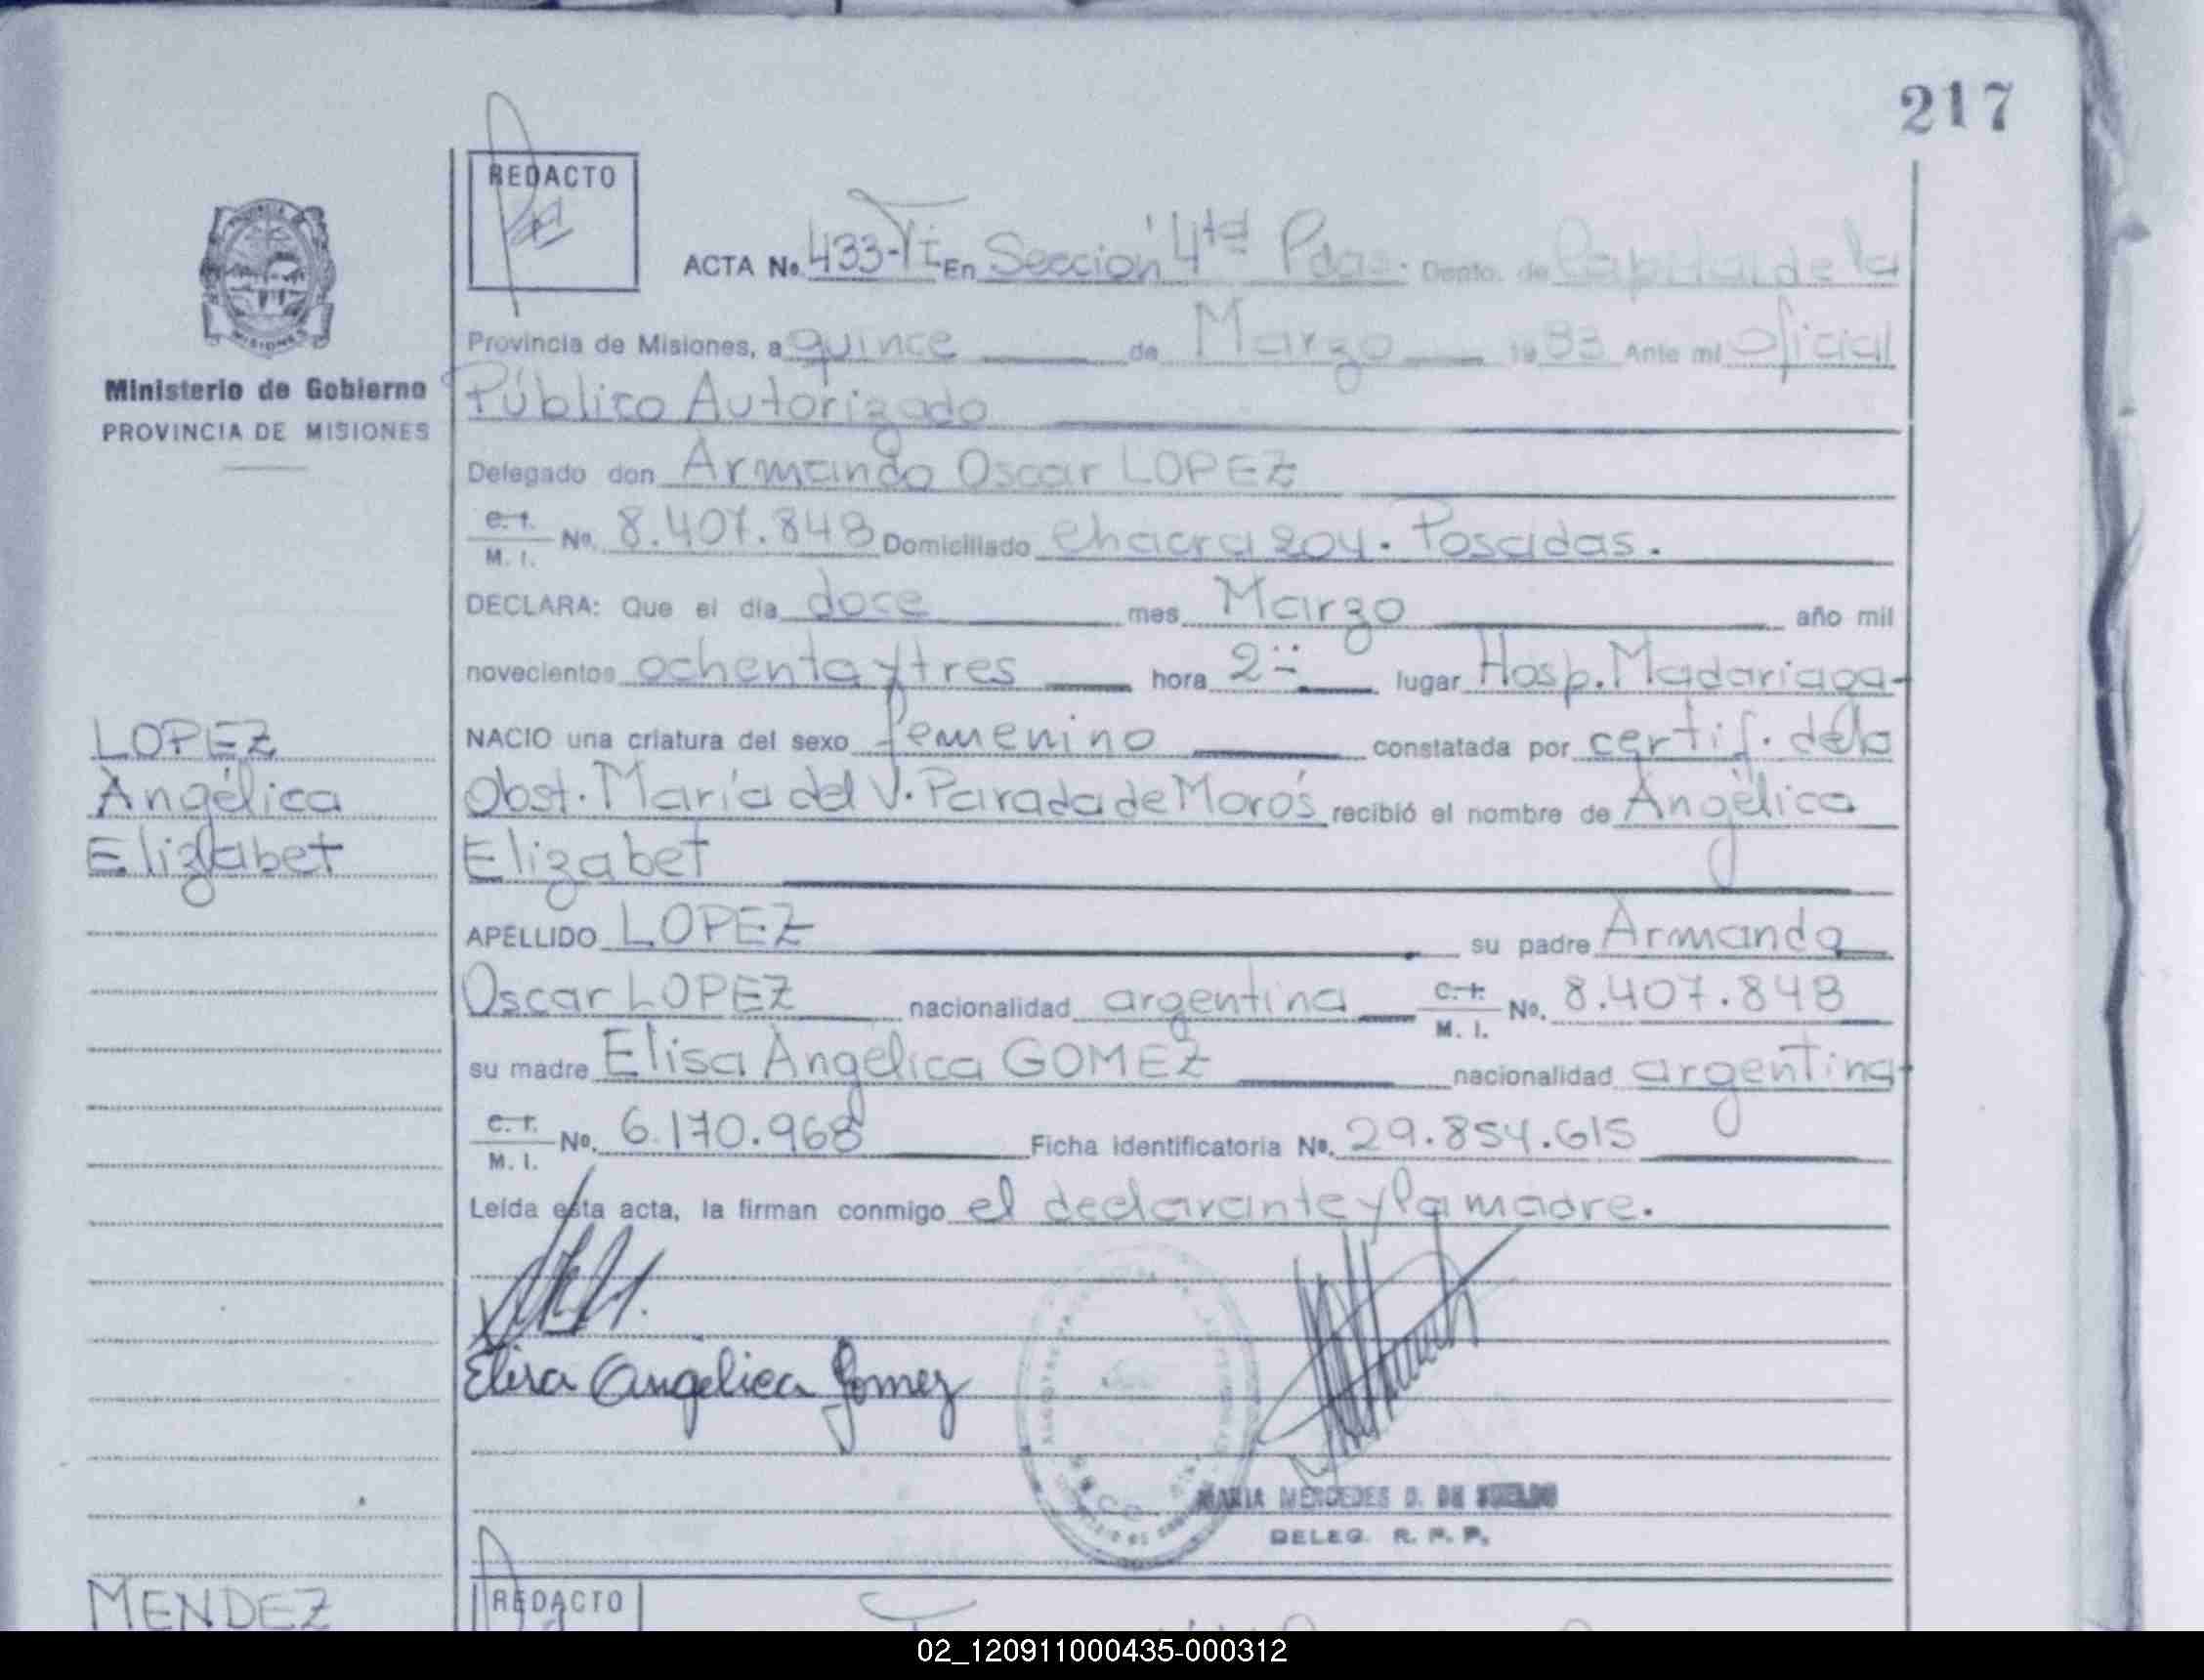 217
REDACTO
ACTA No. 433-TI En Sección 4ta Pdas. Depto. de Capital de la
Provincia de Misiones, a quince de Marzo 1983 Ante mi Oficial
Ministerio de Gobierno
PROVINCIA DE MISIONES
Público Autorizado
Delegado don Armando Oscar LOPEZ
C.I. M. I. No. 8.407.848 Domiciliado Chacra 204. Posadas.
DECLARA: Que el día doce mes Marzo año mil
novecientos ochenta y tres hora 2 lugar Hosp. Madariaga-
LOPEZ
Angélica
Elizabet
NACIO una criatura del sexo femenino constatada por certif. de la
Obst. María del V. Parada de Morós recibió el nombre de Angélica
Elizabet
APELLIDO LOPEZ su padre Armando
Oscar LOPEZ nacionalidad argentina C.I. M. I. No. 8.407.848
su madre Elisa Angélica GOMEZ nacionalidad argentina
C.I. M. I. No. 6.170.968 Ficha identificatoria No. 29.854.615
Leída esta acta, la firman conmigo el declarante y la madre.
Elisa Angélica Gomez
MARIA MERCEDES D. DE
DELEG. R. P. P.
MENDEZ
REDACTO
02_120911000435-000312